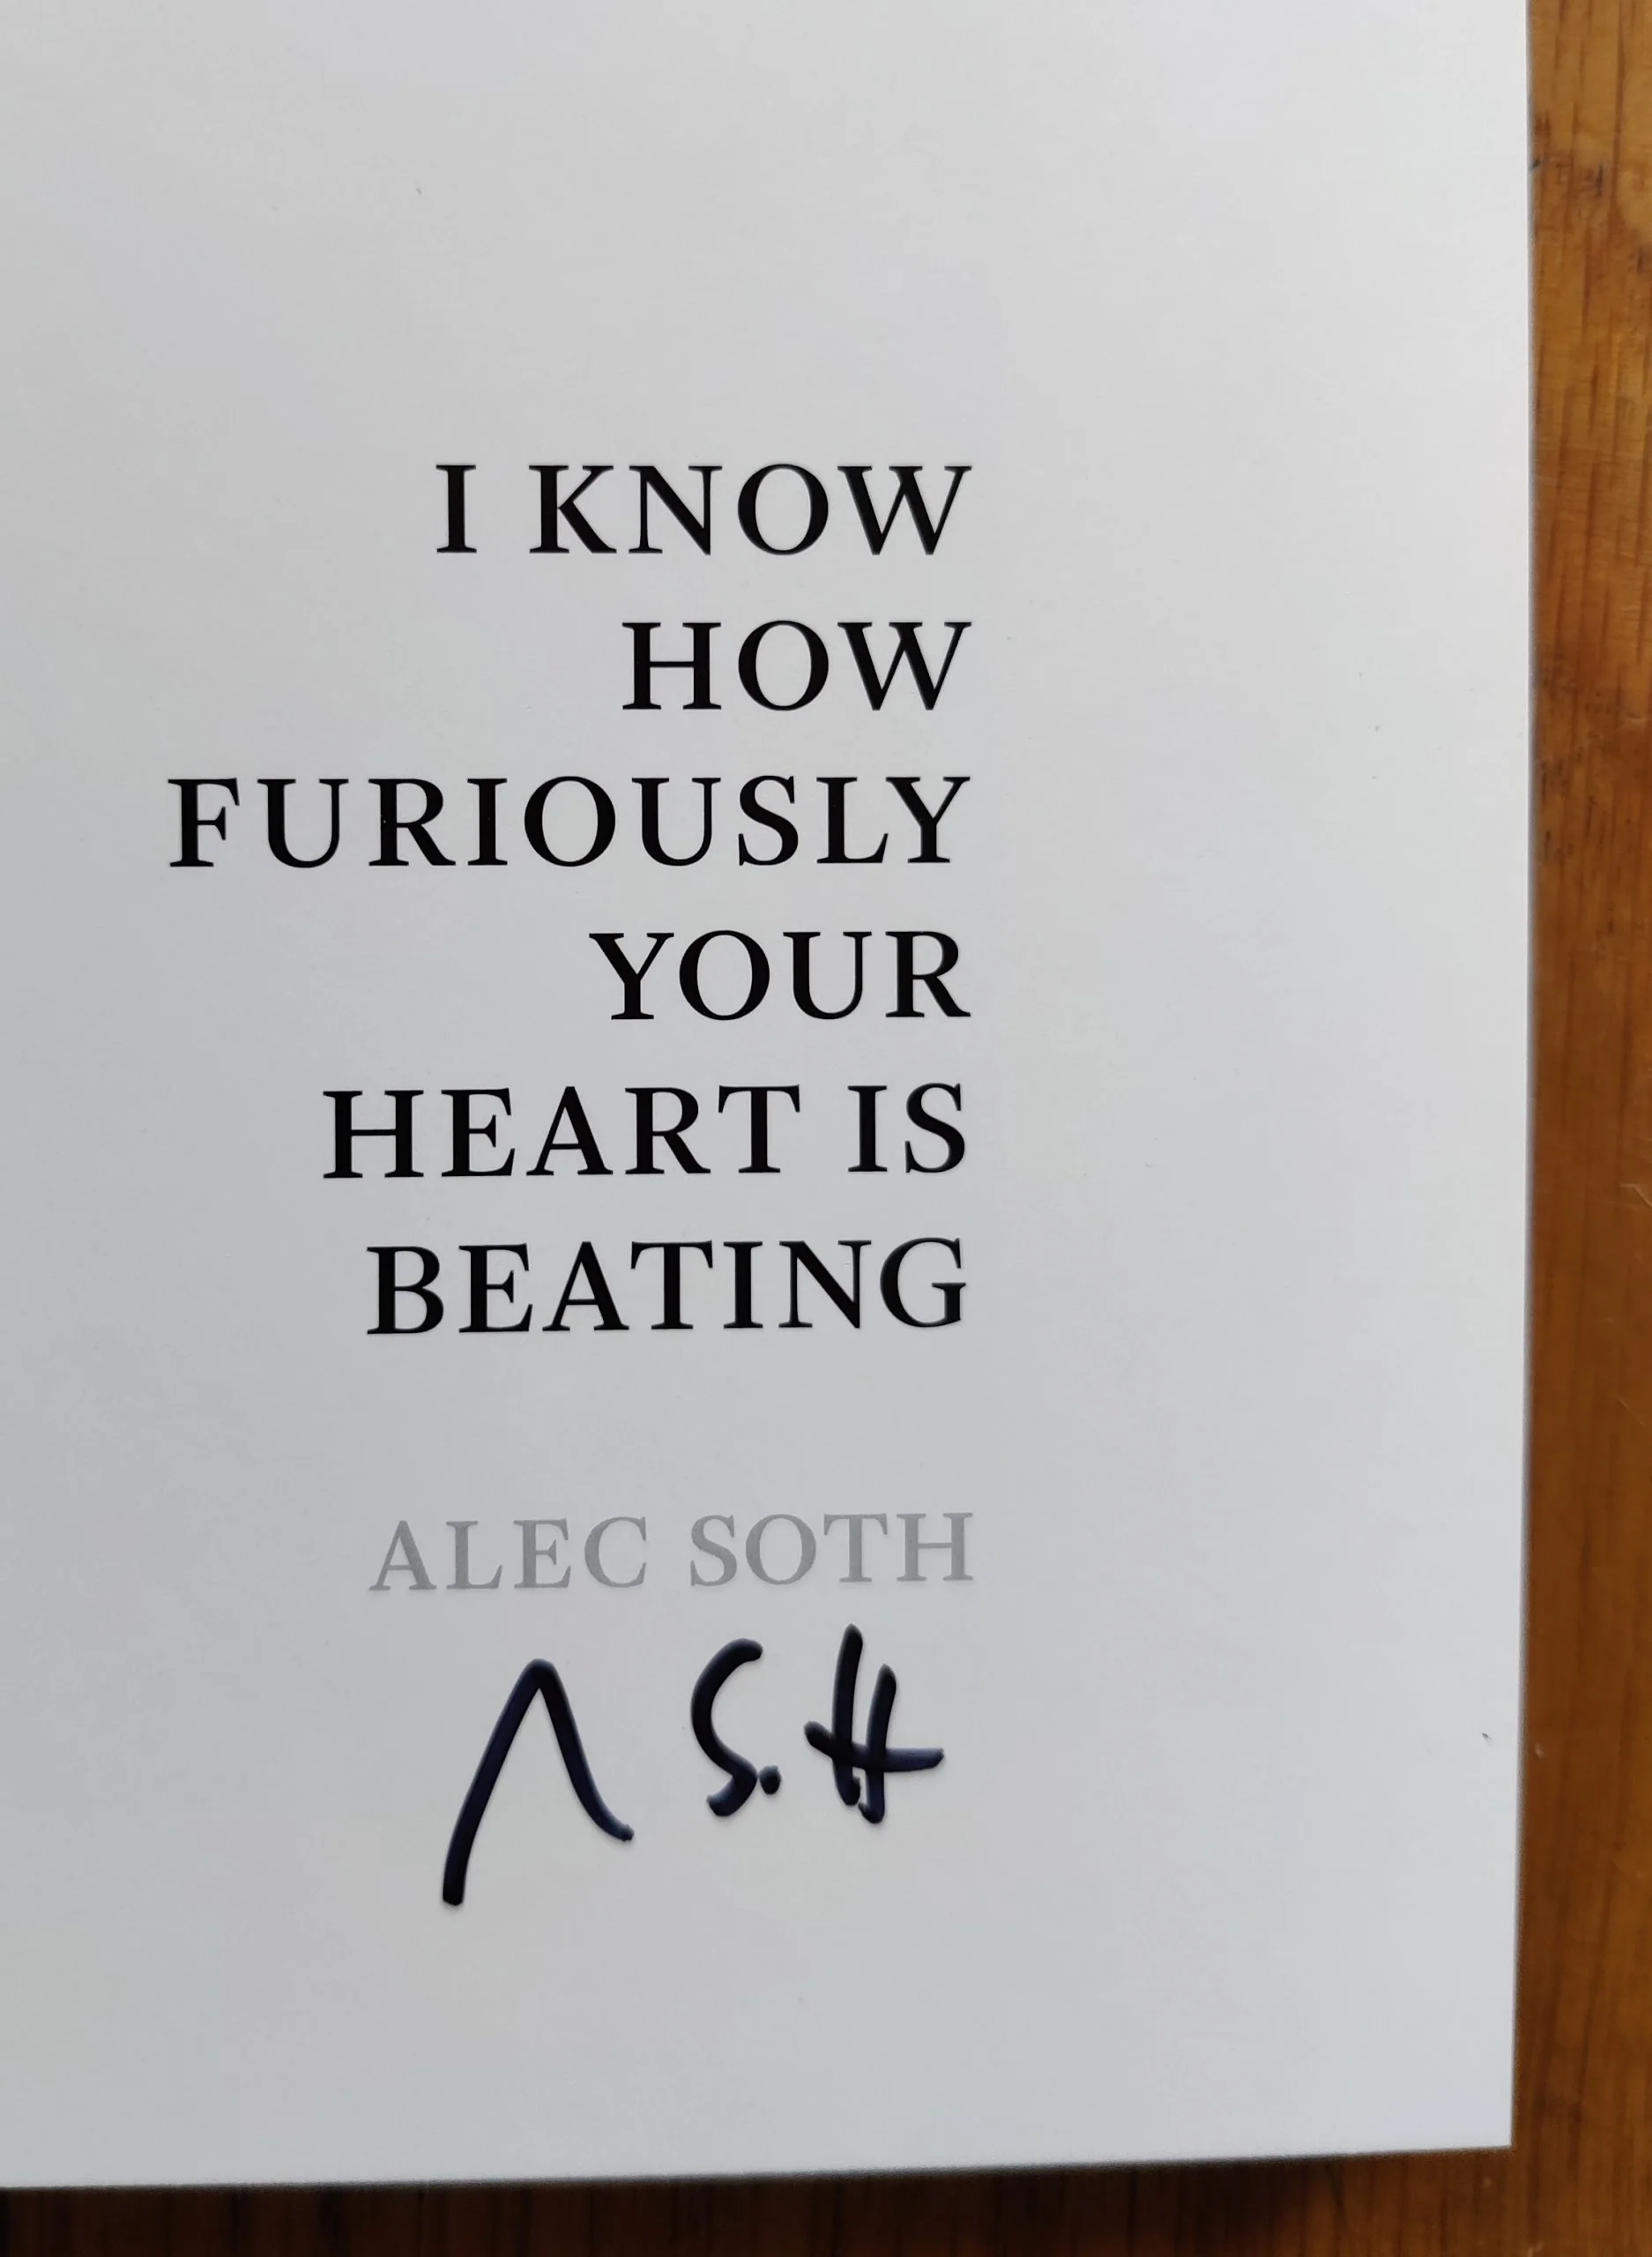 I KNOW
HOW
FURIOUSLY
YOUR
HEART IS
BEATING
ALEC SOTH
A Soth